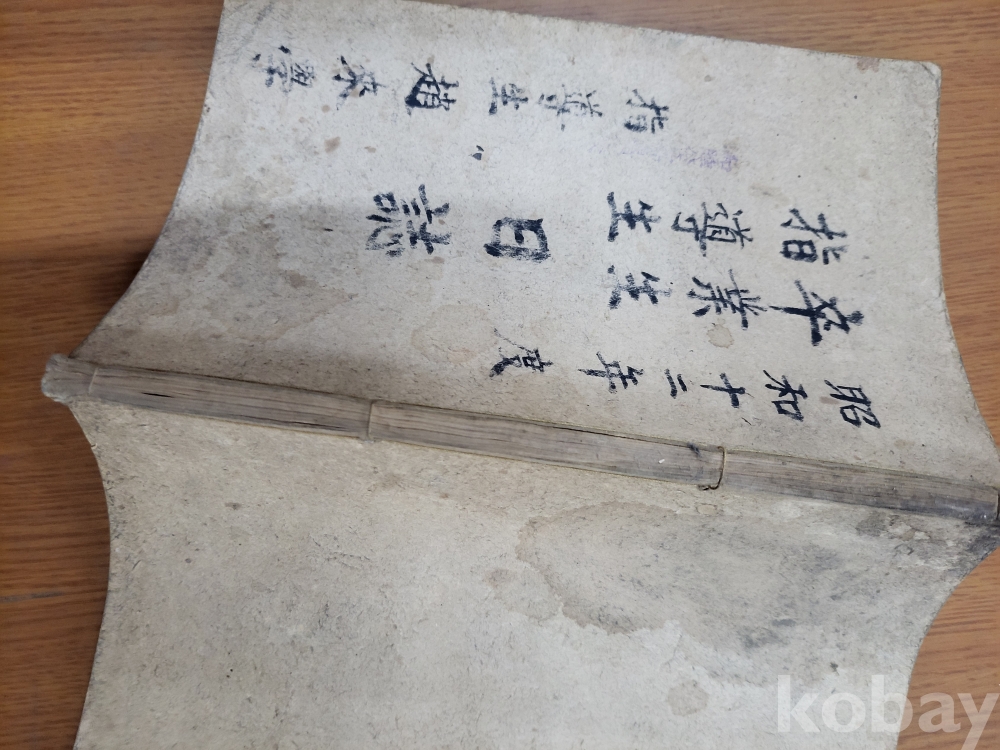 昭和十二年度
卒業生
指導生 日誌
指導生 趙
kobay